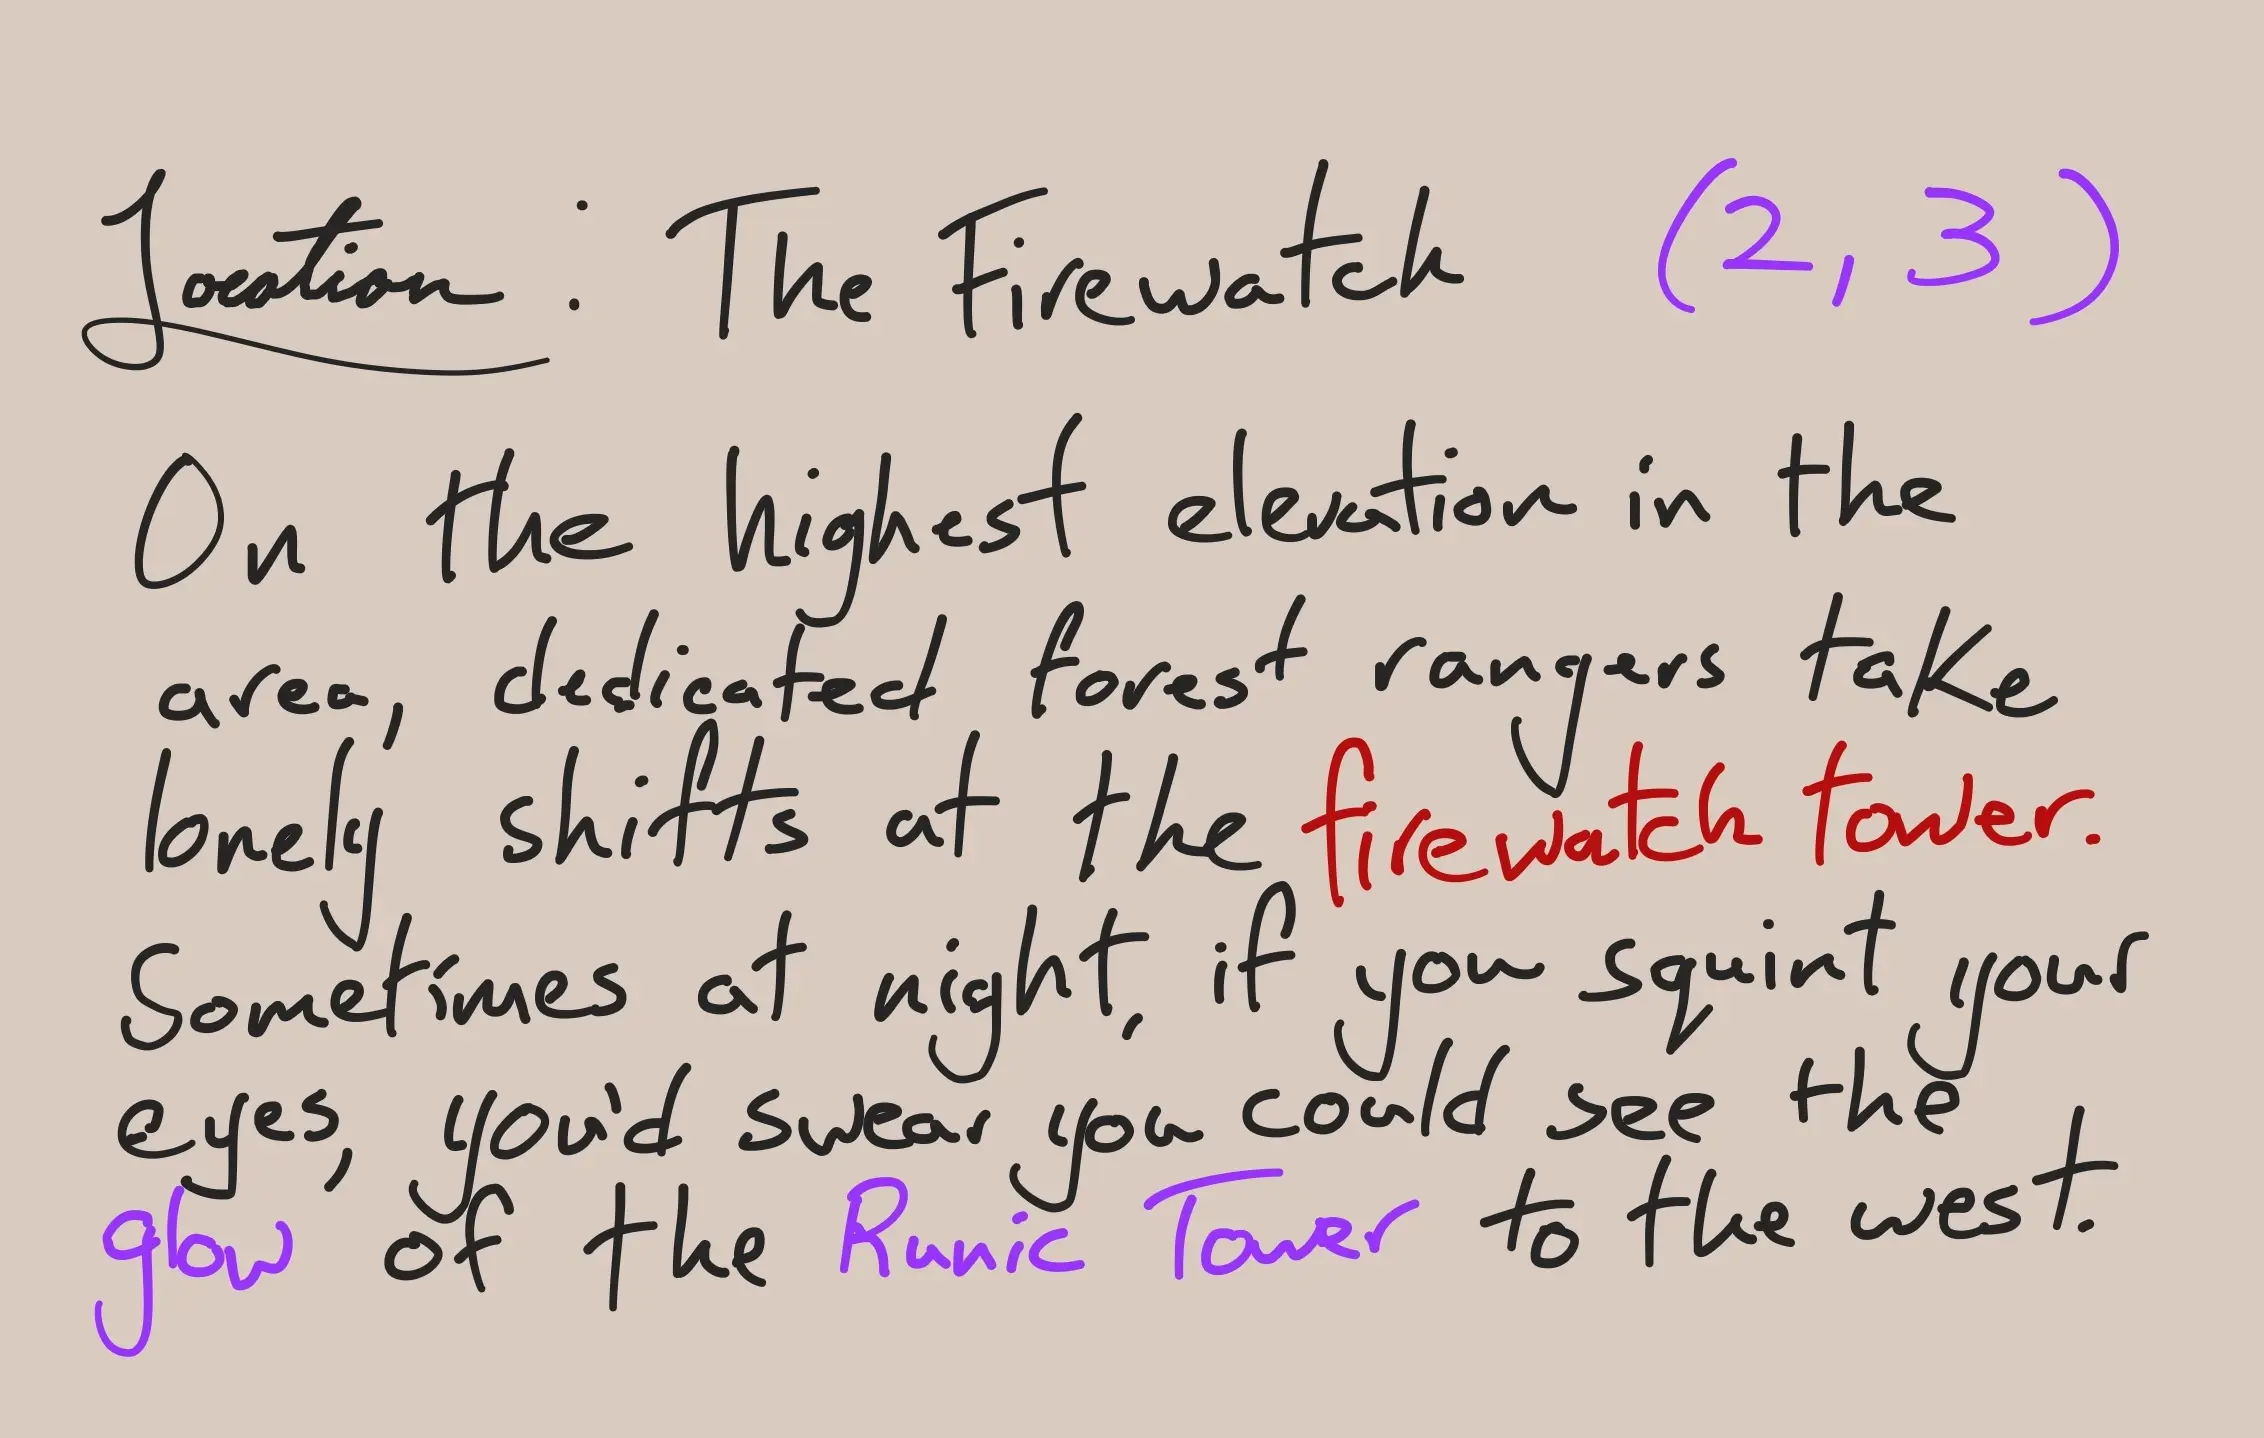 Location: The Firewatch (2, 3)
On the highest elevation in the
area, dedicated forest rangers take
lonely shifts at the firewatch tower.
Sometimes at night, if you squint your
eyes, you'd swear you could see the
glow of the Runic Tower to the west.